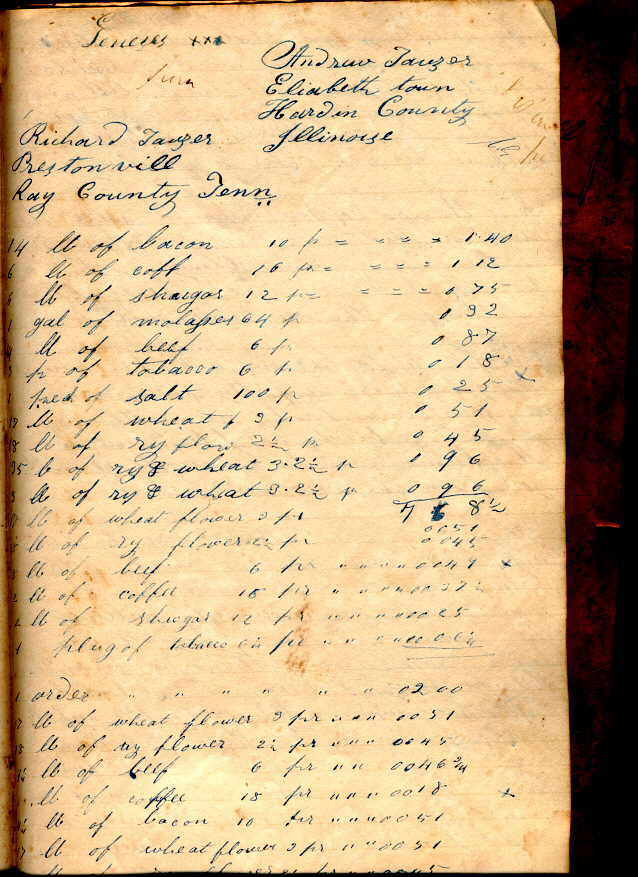 Andrew Tauzer
Eliabeth town
Hardin County
Illinoise
Richard Tauzer
Prestonvill
Ray County Tenn
14 lb of bacon 10 pr = = = = 1.40
lb of coff 16 pr = = = = 1 12
lb of shugar 12 pr = = = 0 75
1 gal of molasses 64 pr 0 32
lb of beef 6 pr 0 87
pr of tobacco 6 pr 0 18 x
1 of salt 100 pr 0 25
17 lb of wheat 3 pr 0 51
18 lb of ry flow 2½ pr 0 45
35 lb of ry & wheat 3.2½ pr 0 96
lb of ry & what 3.2½ pr 0 96
7 6 8½
lb of wheat flower 3 pr 0051
lb of ry flower 2½ pr 0045
lb of beef 6 pr " " " " 0047 x
lb of coffee 18 pr " " " 0027½
lb of shugar 12 pr " " " 0025
1 plug of tobacco 6¼ pr " " " 006¼
1 order " " " " " 0200
17 lb of wheat flower 3 pr " " " 0051
18 lb of ry flower 2½ pr " " " 0045
lb of beef 6 pr " " 0046¾
lb of coffee 18 pr " " " 0018 x
lb of bacon 10 pr " " " 0051
17 lb of wheat flower 3 pr " " 0051